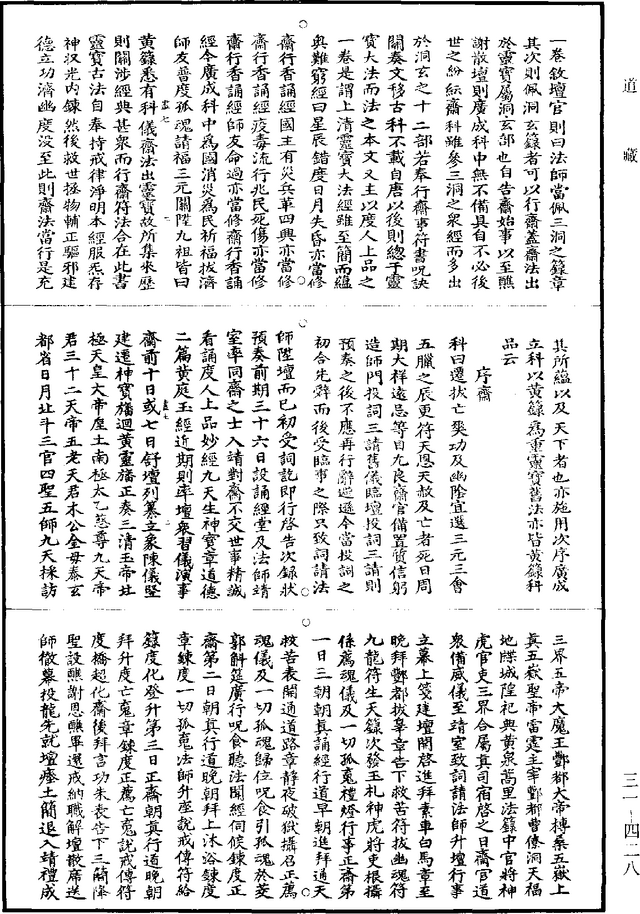 道藏
一卷敘壇官則曰法師當佩三洞之籙章
其次則佩洞玄籙者可以行齋蓋齋法出
於靈寶屬洞玄部也自告齋始事以至醮
謝散壇則廣成科中無不備具自不必後
世之紛紜齋科雖參三洞之衆經而多出
於洞玄之十二部若奉行齋事符書呪訣
關奏文移古科不載自唐以後則總于靈
寶大法而法之本文又主以度人上品之
一卷是謂上清靈寶大法經雖至簡而蘊
奧難窮經曰星辰錯度日月失昏亦當修
齋行香誦經國主有災兵革四興亦當修
齋行香誦經疫毒流行兆民死傷亦當修
齋行香誦經師友命過亦當修齋行香誦
經今廣成科中爲國消災爲民祈福拔濟
師友普度孤魂請福三元關陞九祖皆曰
黃籙悉有科儀齋法出靈寶故所集來歷
則關涉經典甚衆而行齋符法合在此書
靈寶古法自奉持戒律淨明本經服炁存
神收光內鍊然後救世拯物輔正驅邪建
德立功濟幽度沒至此則齋法當行是充
其所蘊以及天下者也亦施用次序廣成
立科以黃籙爲重靈寶舊法亦皆黃籙科
品云
序齋
科曰遷拔亡爽功及幽陰宜選三元三會
五臘之辰更符天恩天赦及亡者死日周
期大祥遠忌等日九良齋官備置質信躬
造師門投詞三請舊儀臨壇投詞三請則
預奏之後不應再行辭遜遜今當投詞之
初合先辭而後受臨事之際只致詞請法
師陞壇而已初受詞訖即行啓告次錄狀
預奏前期三十六日設誦經堂及法師靖
室率同齋之士入靖對齋不交世事精誠
看誦度人上品妙經九天生神寶章道德
二篇黃庭玉經近期則率壇衆習儀演事
齋前十日或七日舒壇列纂立象陳儀豎
建遷神寶旛迴黃靈旛正奏三清玉帝北
極天皇大帝皇土南極太乙慈尊九天帝
君三十二天帝五老天君木公金母泰玄
都省日月北斗三官四聖五師九天採訪
三界五帝大魔王酆都大帝榑桑五嶽上
真五嶽聖帝雷霆主宰酆都曹僚洞天福
地牒城隍祀典黃泉蒿里法籙中官將神
虎官吏三界合屬真司宿啓之日齋官道
衆備威儀至靖室致詞請法師升壇行事
立幕上牋建壇開啓進拜素車白馬章至
晚拜酆都拔辠章告下救苦符拔幽魂符
九龍符生天籙次發玉札神虎將吏根攝
係薦魂儀及一切孤魂㷭燈行事正齋第
一日三朝朝真誦經行道早朝進拜通天
救苦表開通道路章靜夜破獄攝召正薦
魂儀及一切孤魂歸位呪食引孤魂於菱
郭斛筵廣行呪食聽法聞經伺候鍊度正
齋第二日朝真行道晚朝拜上沐浴鍊度
章鍊度一切孤魂法師升座說戒傳符給
籙度化登升第三日正齋朝真行道晚朝
拜升度亡魂章鍊度正薦亡魂說戒傳符
度橋超化齋後拜言功朱表告下三簡降
聖設醮謝恩醮畢還戒納職解壇散席送
師徹幕投龍先就壇瘞土簡退入靖禮成
三一—四二八